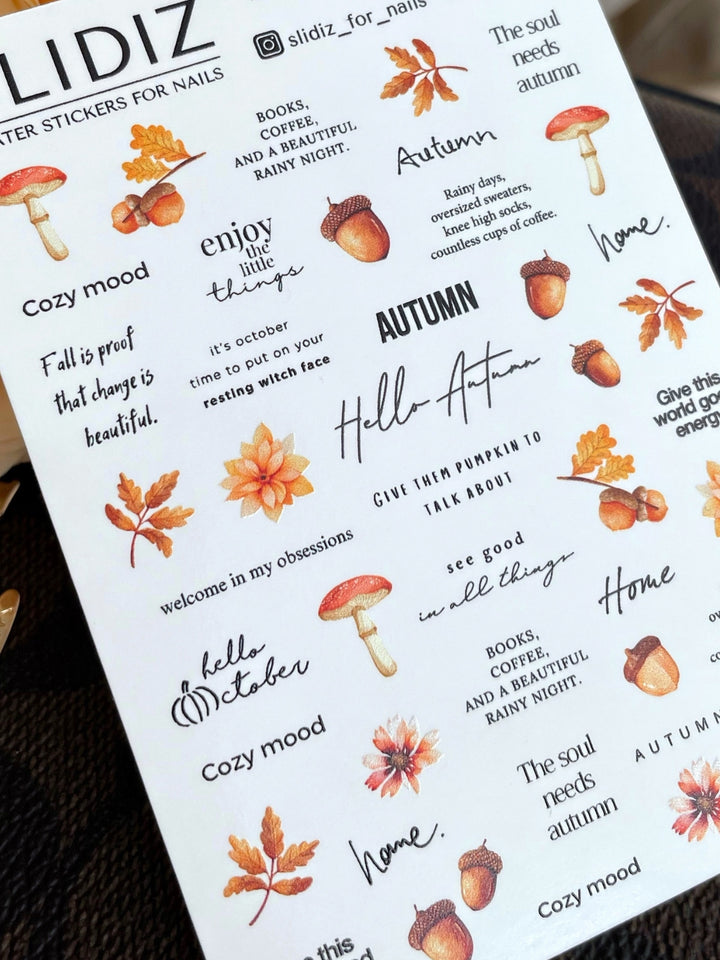 LIDIZ
slidiz_for_nails
ATER STICKERS FOR NAILS
The soul
needs
autumn
BOOKS,
COFFEE,
AND A BEAUTIFUL
RAINY NIGHT.
Autumn
Rainy days,
oversized sweaters,
knee high socks,
countless cups of coffee.
enjoy
the
little
things
home.
Cozy mood
AUTUMN
it's october
time to put on your
resting witch face
Fall is proof
that change is
beautiful.
Hello Autumn
Give this
world goo
energy
GIVE THEM PUMPKIN TO
TALK ABOUT
welcome in my obsessions
see good
in all things
Home
hello
October
BOOKS,
COFFEE,
AND A BEAUTIFUL
RAINY NIGHT.
ov
co
Cozy mood
AUTUMN
The soul
needs
autumn
home.
Cozy mood
this